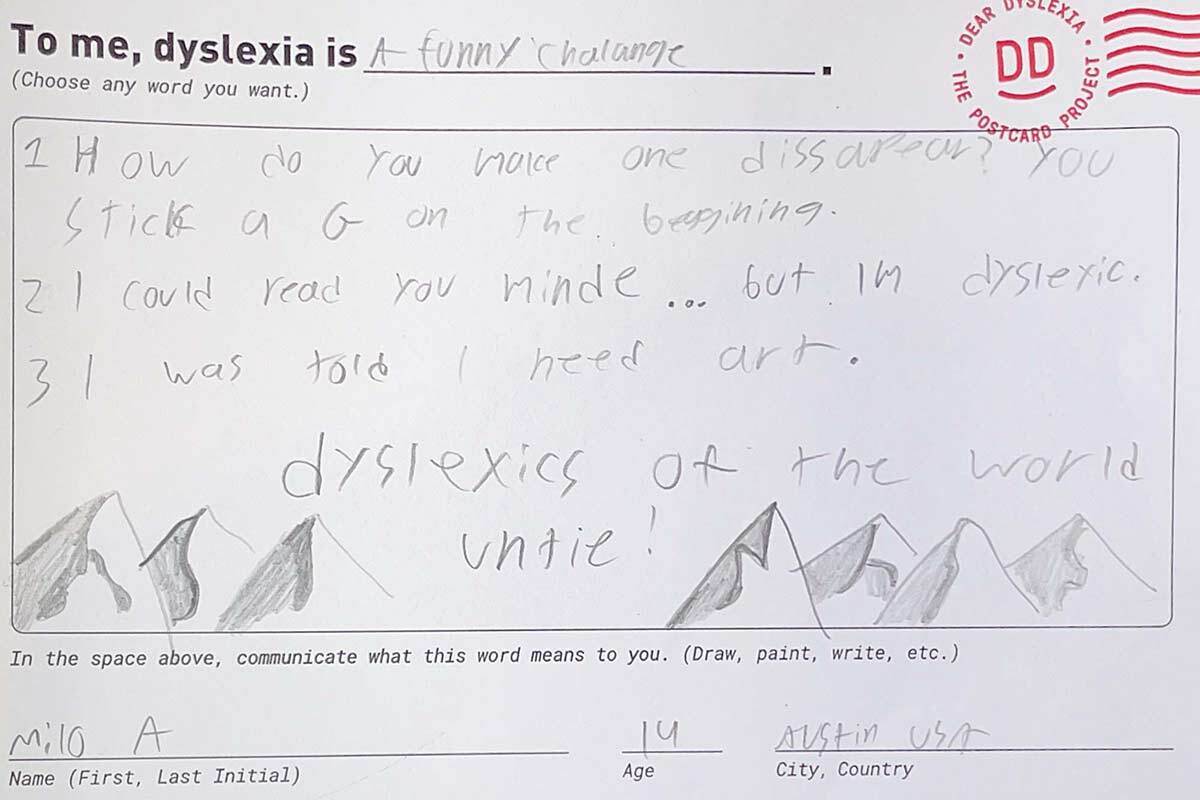 To me, dyslexia is A funny chalange.
(Choose any word you want.)
DEAR DYSLEXIA • THE POSTCARD PROJECT •
DD
1 How do you make one dissapear? you
stick a G on the beggining.
2 I could read you minde ... but Im dyslexic.
3 I was told I need art.
dyslexics of the world
untie!
In the space above, communicate what this word means to you. (Draw, paint, write, etc.)
Milo A
Name (First, Last Initial)
14
Age
Austin USA
City, Country